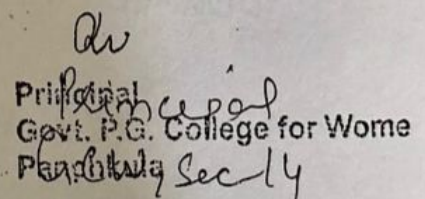 Principal
Principal
Govt. P.G. College for Wome
Panchkula Sec-14